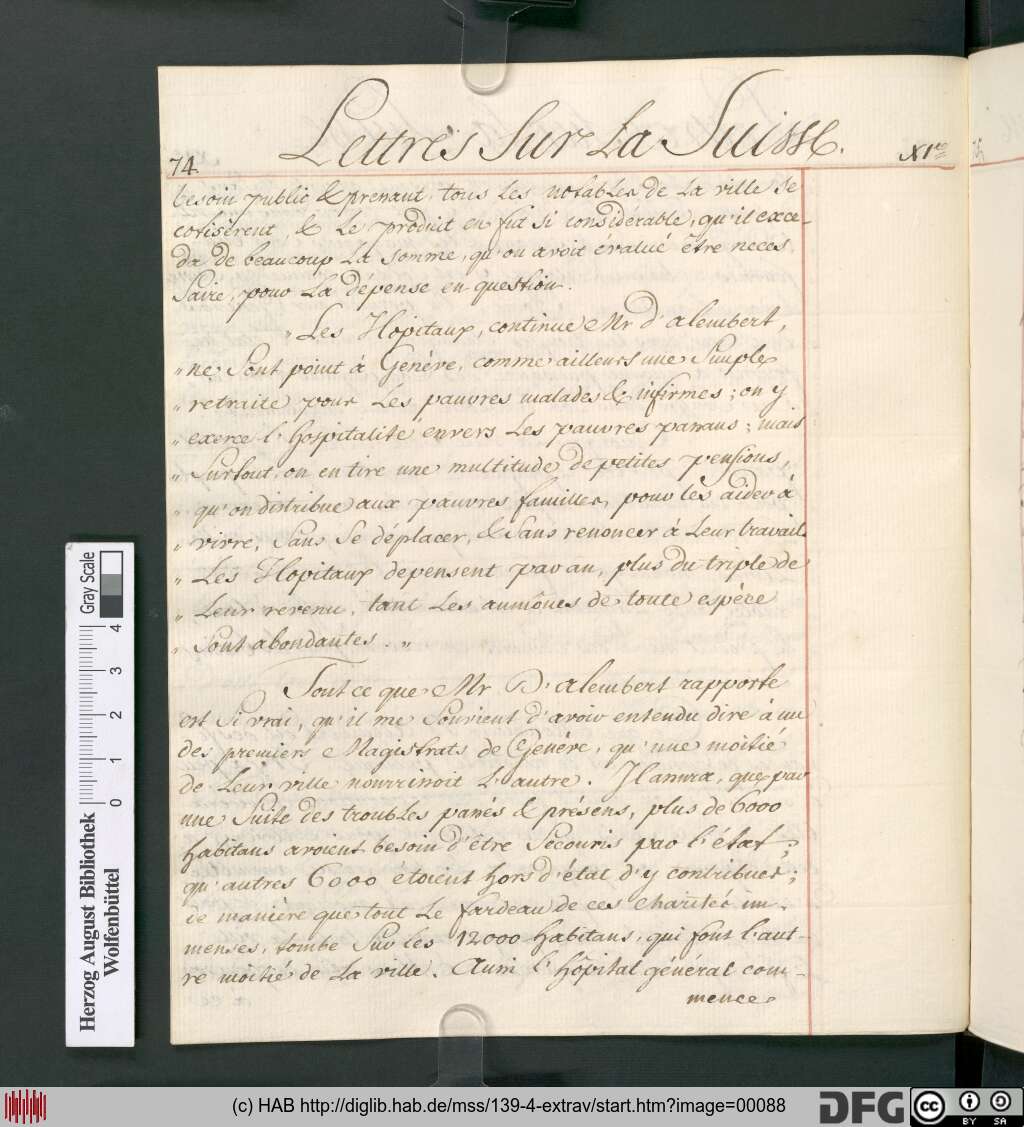 Lettres Sur La Suisse.
74.
XI.e
besoin public & prenant, tous Les notables de La ville se
cotisèrent, & Le produit en fut si considérable, qu'il exce-
da de beaucoup La somme, qu'on avoit évalué être neces
Saire, pour La dépense en question.
„ Les Hôpitaux, continue Mr d'alembert,
„ ne Sont point à Genève, comme ailleurs une Simple
„ retraite pour Les pauvres malades & infirmes; on y
„ exerce l'hospitalité envers Les pauvres passans; mais
„ Surtout, on en tire une multitude de petites pensions,
„ qu'on distribue aux pauvres familles, pour les aider à
„ vivre, Sans Se déplacer, & Sans renoncer à Leur travail.
„ Les Hopitaux depensent par an, plus du triple de
„ Leur revenu, tant Les aumônes de toute espèce
„ Sont abondantes. „
Tout ce que Mr. D'alembert rapporte
est Si vrai, qu'il me Souvient d'avoir entendu dire à un
des premiers Magistrats de Genève, qu'une moitié
de Leur ville nourrissoit L'autre. Il assura, que par
une Suite des troubles passés & présens, plus de 6000
habitans avoient besoin d'être Sécouris par l'état;
qu'autres 6000 étoient hors d'état d'y contribuer;
de manière que tout Le fardeau de ces charités im-
menses, tombe Sur les 12000 habitans, qui font l'aut-
re moitié de La ville. Aussi l'hôpital général com-
mence
Gray Scale
0 1 2 3 4
Herzog August Bibliothek
Wolfenbüttel
(c) HAB http://diglib.hab.de/mss/139-4-extrav/start.htm?image=00088
DFG
cc BY SA